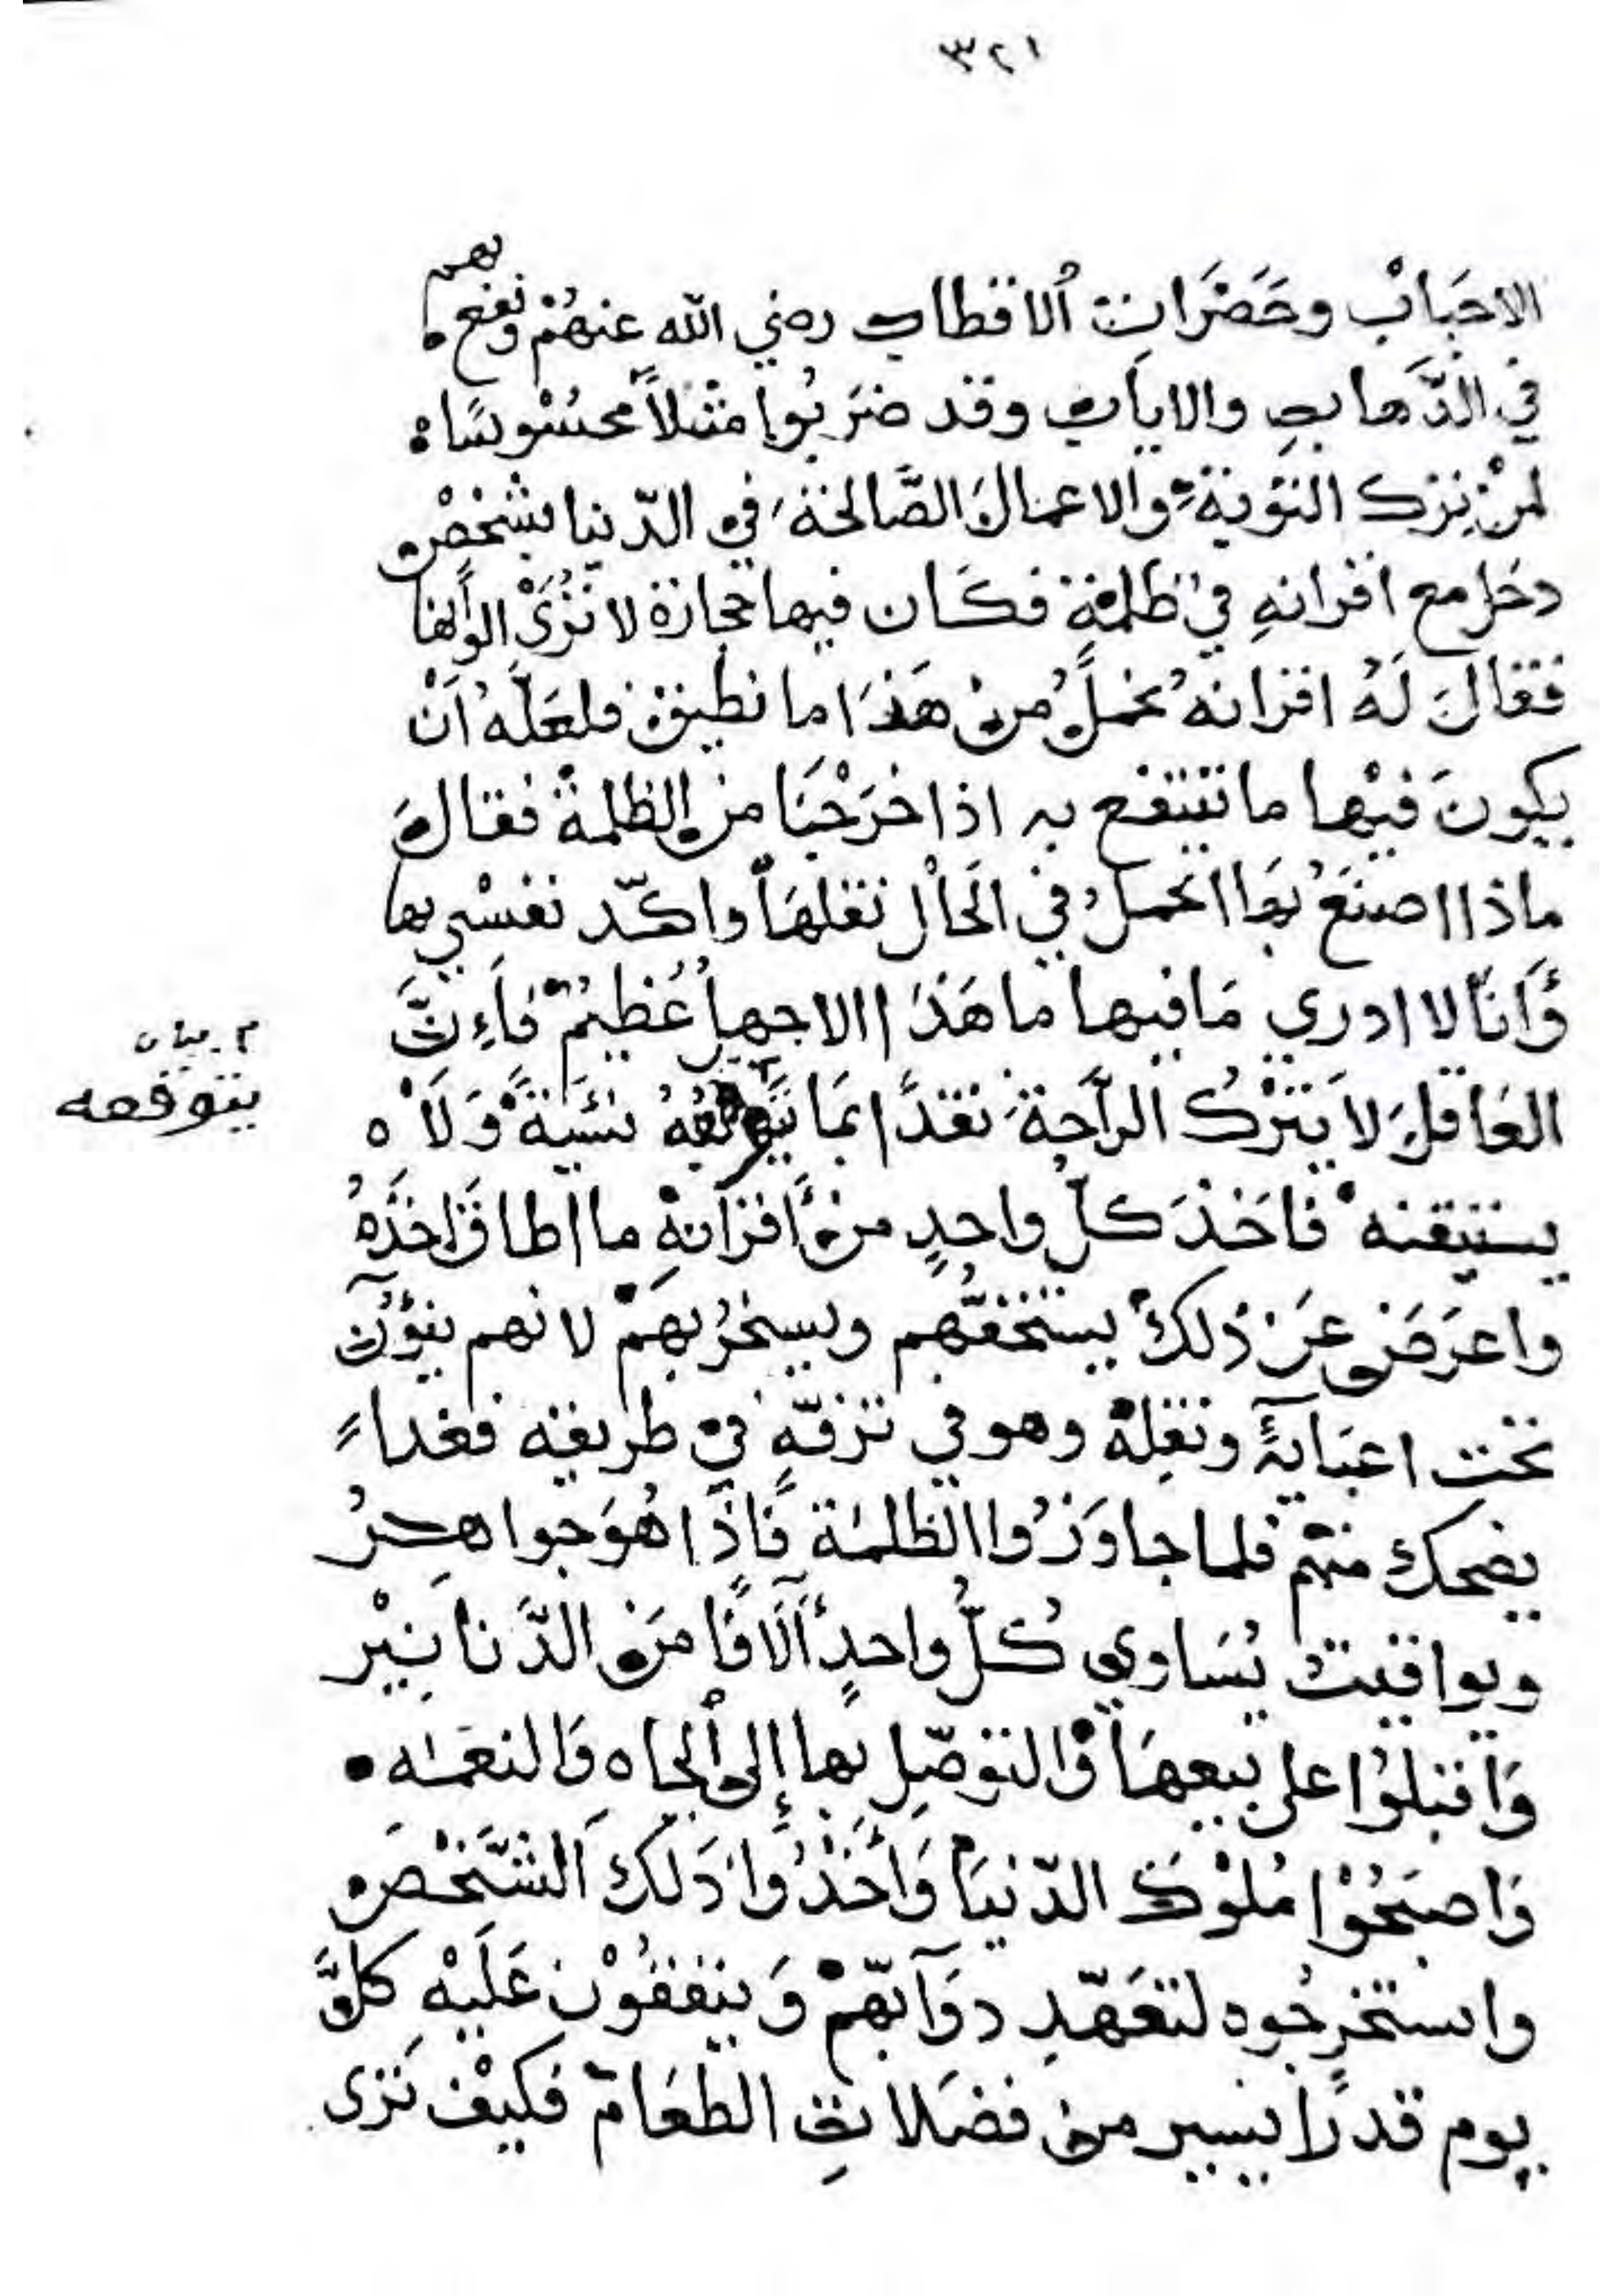 ٣٢١
الاحبَابْ وحَضَرَاتِ اُلاقطاب رضي الله عنهُمْ ونفع بهم
في الذَّهابِ والاياب وقد ضَرَبُوا مَثَلاً محسُوْسًا ه
لمنْ يترك التوبة والاعمالَ الصَّالحة في الدّنيا بشخص
دخل مع اقرانهِ في ظلمةٍ فكَان فيها حجارة لا تُرَىْ الوانها
فقالَ لَهُ اقرانهُ نحملُ منْ هَذَا ما نطيق فلعَلَّهُ اَنْ
يكونَ فيْها ما ننتفع به اذا خَرَجْنَا من الظلمة فقالَ
ماذا اصنَعُ بهَا اتحملُ في الحَالْ ثقلهَا واكدّ نفسْي بها
وَاَنَا لا ادري مَا فيها ما هَذَا الا جهلُ عَظيمُ فَاِنَّ
العَاقلَ لا يَترُكُ الرَّاحةَ نقدًا بمَا يتوقعُهُ نسيَةً وَلَاْ ه
م. بيان
يتوقعه
يستيقنه فاَخَذَ كلُّ واحدٍ منْ اَقرَانهِ ما اطاقَ اخذَهُ
واعرَضَ عَنْ ذلكَ يستخفّهم ويسخرُ بهمْ لانهم ينؤن
تحت اعبَآئهِ وثقلِهْ وهو في ترفّهٍ في طريقه فغدا
يضحك منهمْ فلما جاوَزُوا الظلمَة فَاذَا هُوَ جواهرُ
ويواقيت يُسَاوي كُلُّ واحدٍ آلَافًا مِنَ الدَّنَانِيْر
وَاقبلُوْا على بيعهَا وَالتوصّلِ بها إلى اُلجاه وَالنعمَه •
وَاصبَحُوْا مُلوْكَ الدّنيَا وَاَخَذُوا ذَلكَ الشَّخْص
واستخرجُوه لتعَهّدِ دوَآبّهمْ وَينفقُوْن عَلَيْهِ كلَّ
يوم قدرًا يسير من فضَلاتِ الطعَام فكيْفَ تَرى